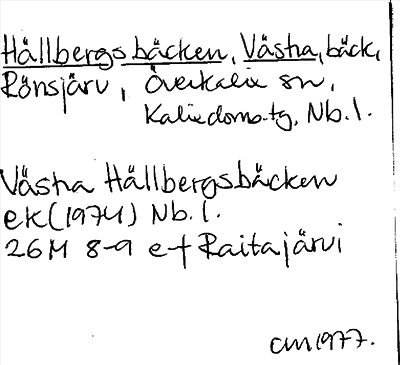 Hällbergsbäcken, Västra, bäck,
Rönsjärv, Överkalix sn,
Kalixdoms.tg, Nb.l.
Västra Hällbergsbäcken
ek (1974) Nb.l.
26M 8-9 e-f Raitajärvi
CM 1977.